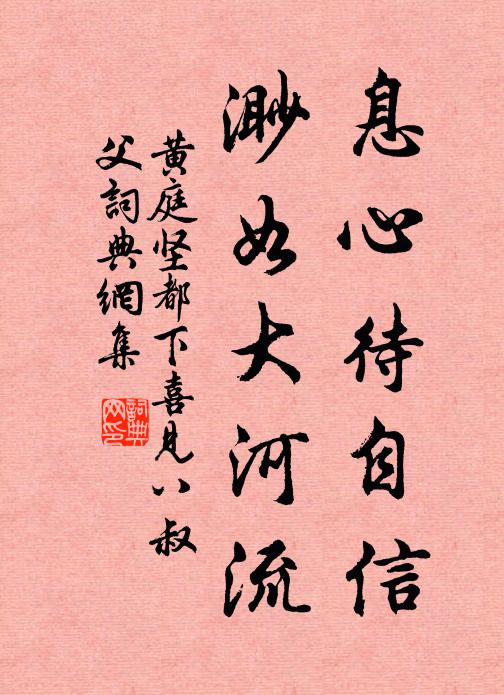 息心待自信
渺如大河流
黄庭坚都下喜見八叔
父詞典網集
詞典
网印